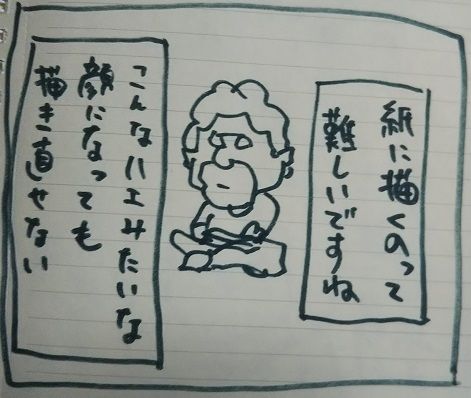 紙に描くのって
難しいですね
こんなハエみたいな
顔になっても
描き直せない